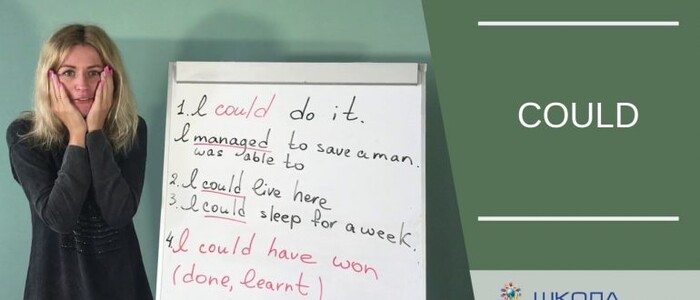 1. I could do it.
I managed to save a man.
was able to
2. I could live here
3. I could sleep for a week.
4. I could have won
(done, learnt)
COULD
ШКОЛА